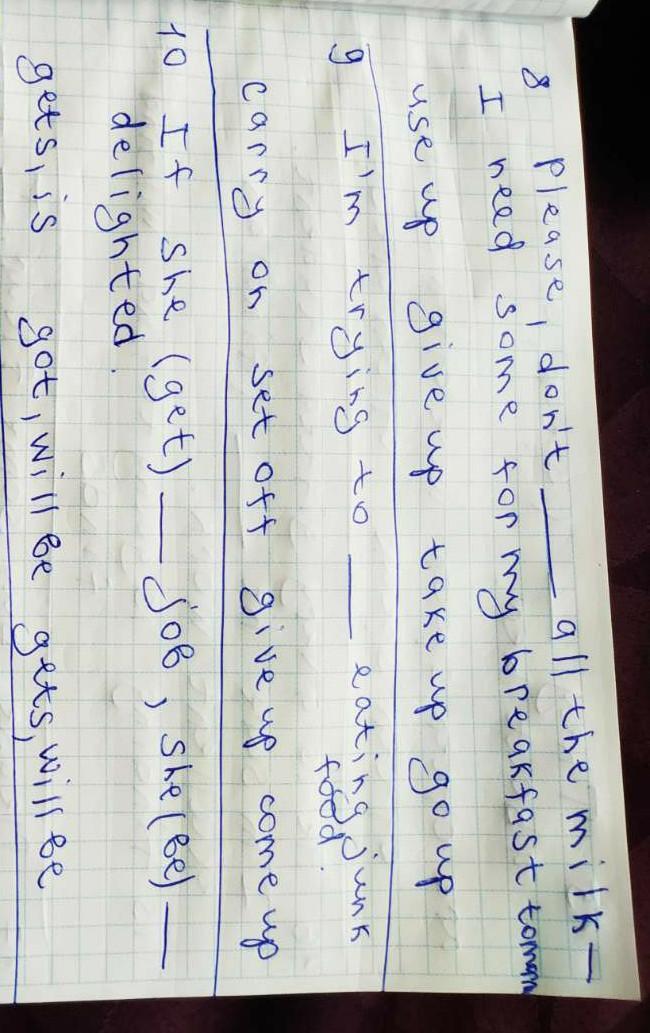 8 please, don't ___ all the milk –
I need some for my breakfast tomm
use up give up take up go up
9 I'm trying to ___ eating junk
food.
carry on set off give up come up
10 If she (get) ___ job, she (be) ___
delighted.
gets, is got, will be gets, will be